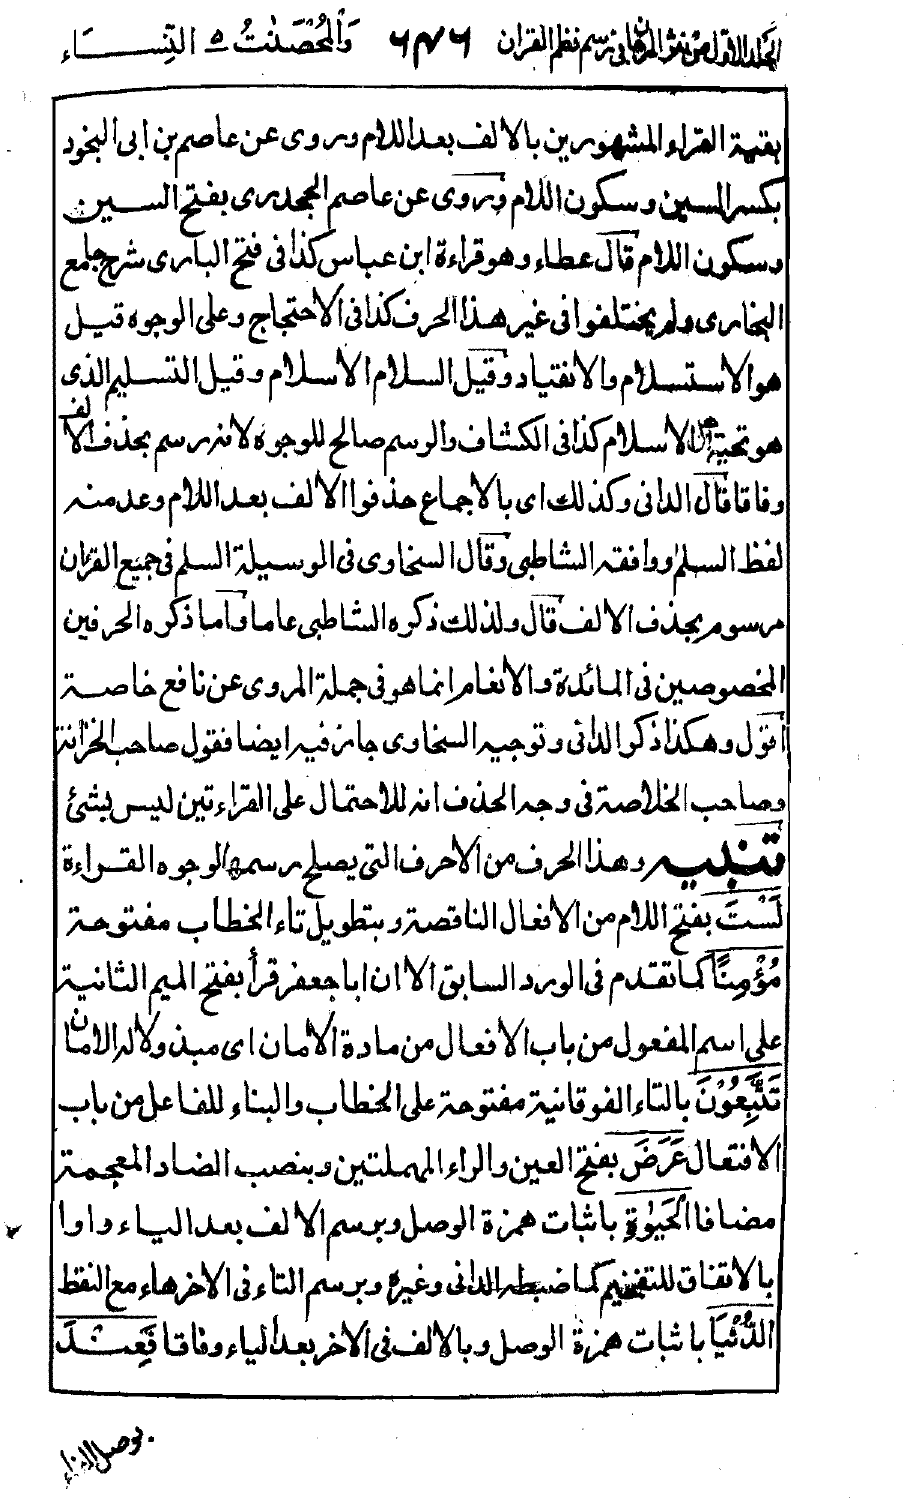 الجلد الاول من نثر المرجان فى رسم نظم القران ٦٤٦ وَالْمُحْصَنٰتُ ٥ النِّسَاء
بقية القراء المشهورين بالالف بعد اللام وروى عن عاصم بن ابى النجود
بكسر السين وسكون اللام وروى عن عاصم الجحدرى بفتح السين
وسكون اللام قال عطاء وهو قراءة ابن عباس كذا فى فتح البارى شرح جامع
البخارى ولم يختلفوا فى غير هذا الحرف كذا فى الاحتجاج وعلى الوجوه قيل
هو الاستسلام والانقياد وقيل السلام الاسلام وقيل التسليم الذى
هو تحية اهل الاسلام كذا فى الكشاف والرسم صالح للوجوه لانه رسم بحذف الالف
وفاقا قال الدانى وكذلك اى بالاجماع حذفوا الالف بعد اللام وعد منه
لفظ السلم ووافقه الشاطبى وقال السخاوى فى الوسيلة السلم فى جميع القران
مرسوم بحذف الالف قال ولذلك ذكره الشاطبى عاما واما ذكره الحرفين
المخصوصين فى المائدة والانعام انما هو فى جملة المروى عن نافع خاصة
اقول وهكذا ذكر الدانى وتوجيه السخاوى جار فيه ايضا فقول صاحب الخزانة
وصاحب الخلاصة فى وجه الحذف انه للاحتمال على القراءتين ليس بشئ
تنبيه وهذا الحرف من الاحرف التى يصلح رسمها لوجوه القراءة
لَسْتَ بفتح اللام من الافعال الناقصة وبتطويل تاء الخطاب مفتوحة
مُؤْمِنًا كما تقدم فى الورد السابق الا ان ابا جعفر قرأ بفتح الميم الثانية
على اسم المفعول من باب الافعال من مادة الامان اى مبذولا له الامان
تَبْتَغُوْنَ بالتاء الفوقانية مفتوحة على الخطاب والبناء للفاعل من باب
الافتعال عَرَضَ بفتح العين والراء المهملتين وبنصب الضاد المعجمة
مضافا الْحَيٰوةِ باثبات همزة الوصل وبرسم الالف بعد الياء واوا
بالاتفاق للتفخيم كما ضبطه الدانى وغيره وبرسم التاء فى الاخر هاء مع النقط
الدُّنْيَا باثبات همزة الوصل وبالالف فى الاخر بعد الياء وفاقا فَعِنْدَ
بوصل الفاء